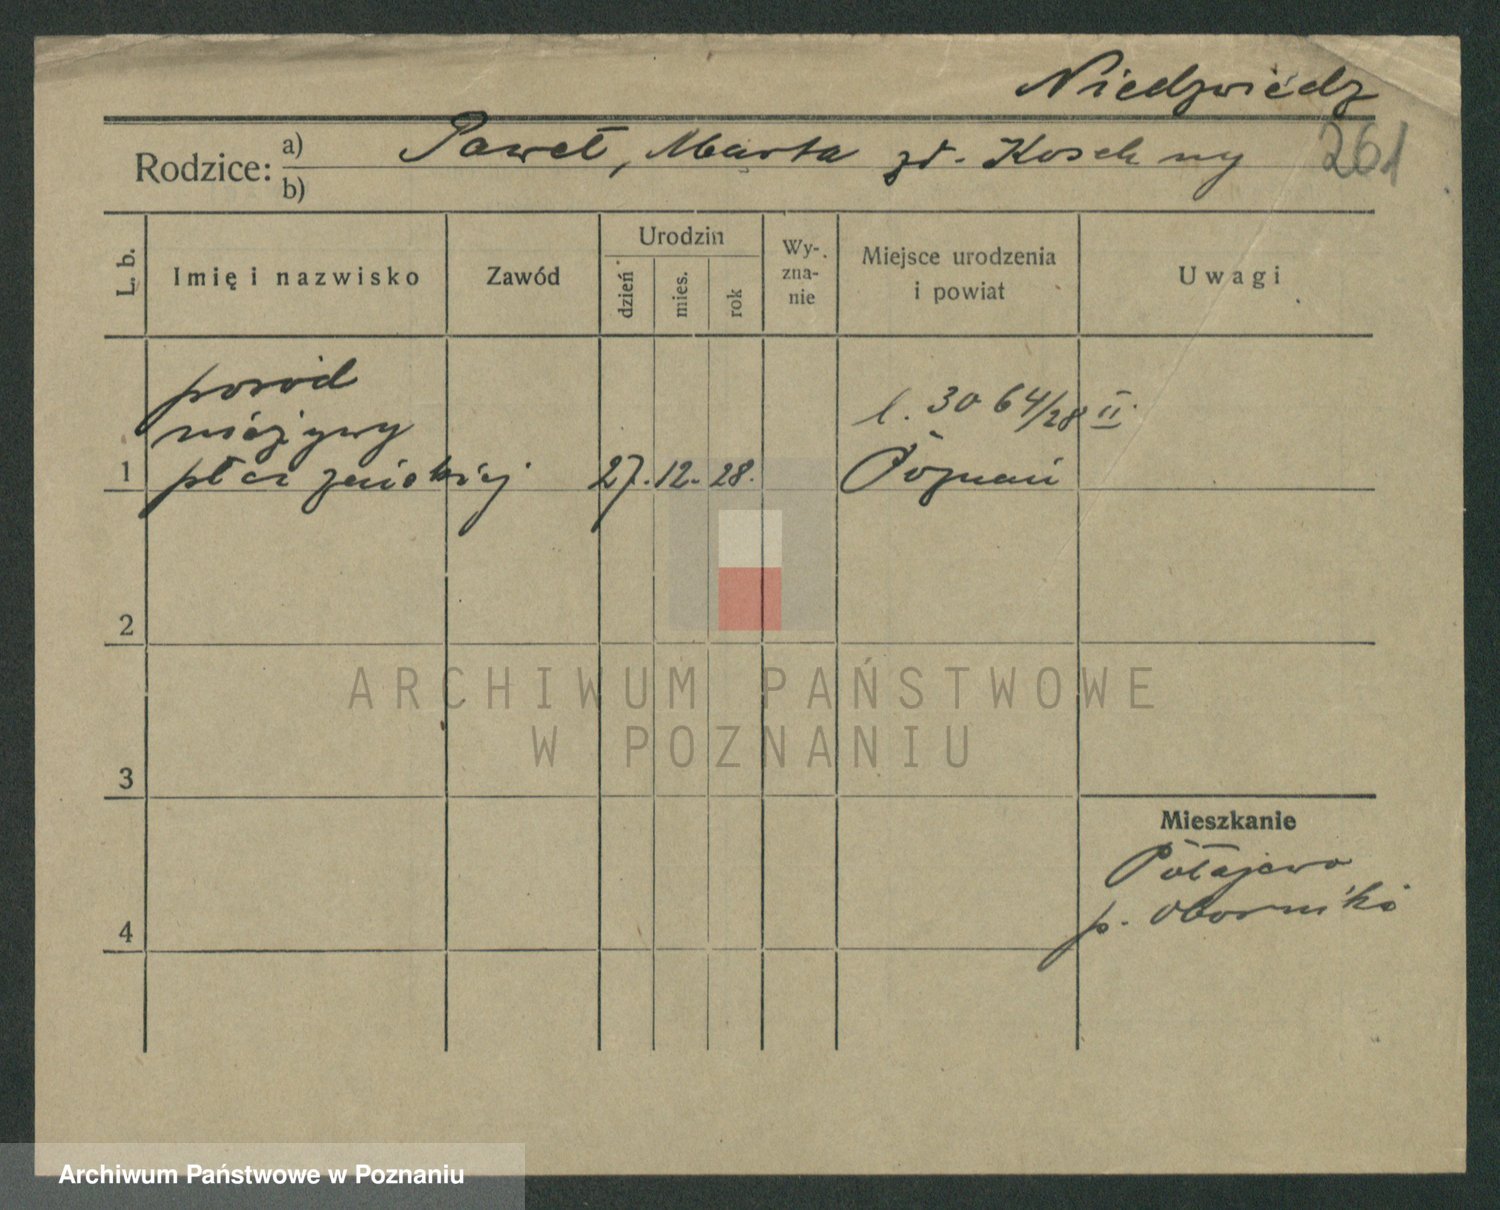 Niedzwiedz
261
Rodzice: a) Paweł, Marta zd. Koschny
b)
L. b.
Imię i nazwisko
Zawód
Urodzin
dzień
mies.
rok
Wy-
zna-
nie
Miejsce urodzenia
i powiat
Uwagi
poród
nieżywy
1 płci żeńskiej 27. 12. 28.
l. 3064/28 II.
Poznań
2
3
4
Mieszkanie
Połajewo
p. Oborniki
ARCHIWUM PAŃSTWOWE
W POZNANIU
Archiwum Państwowe w Poznaniu